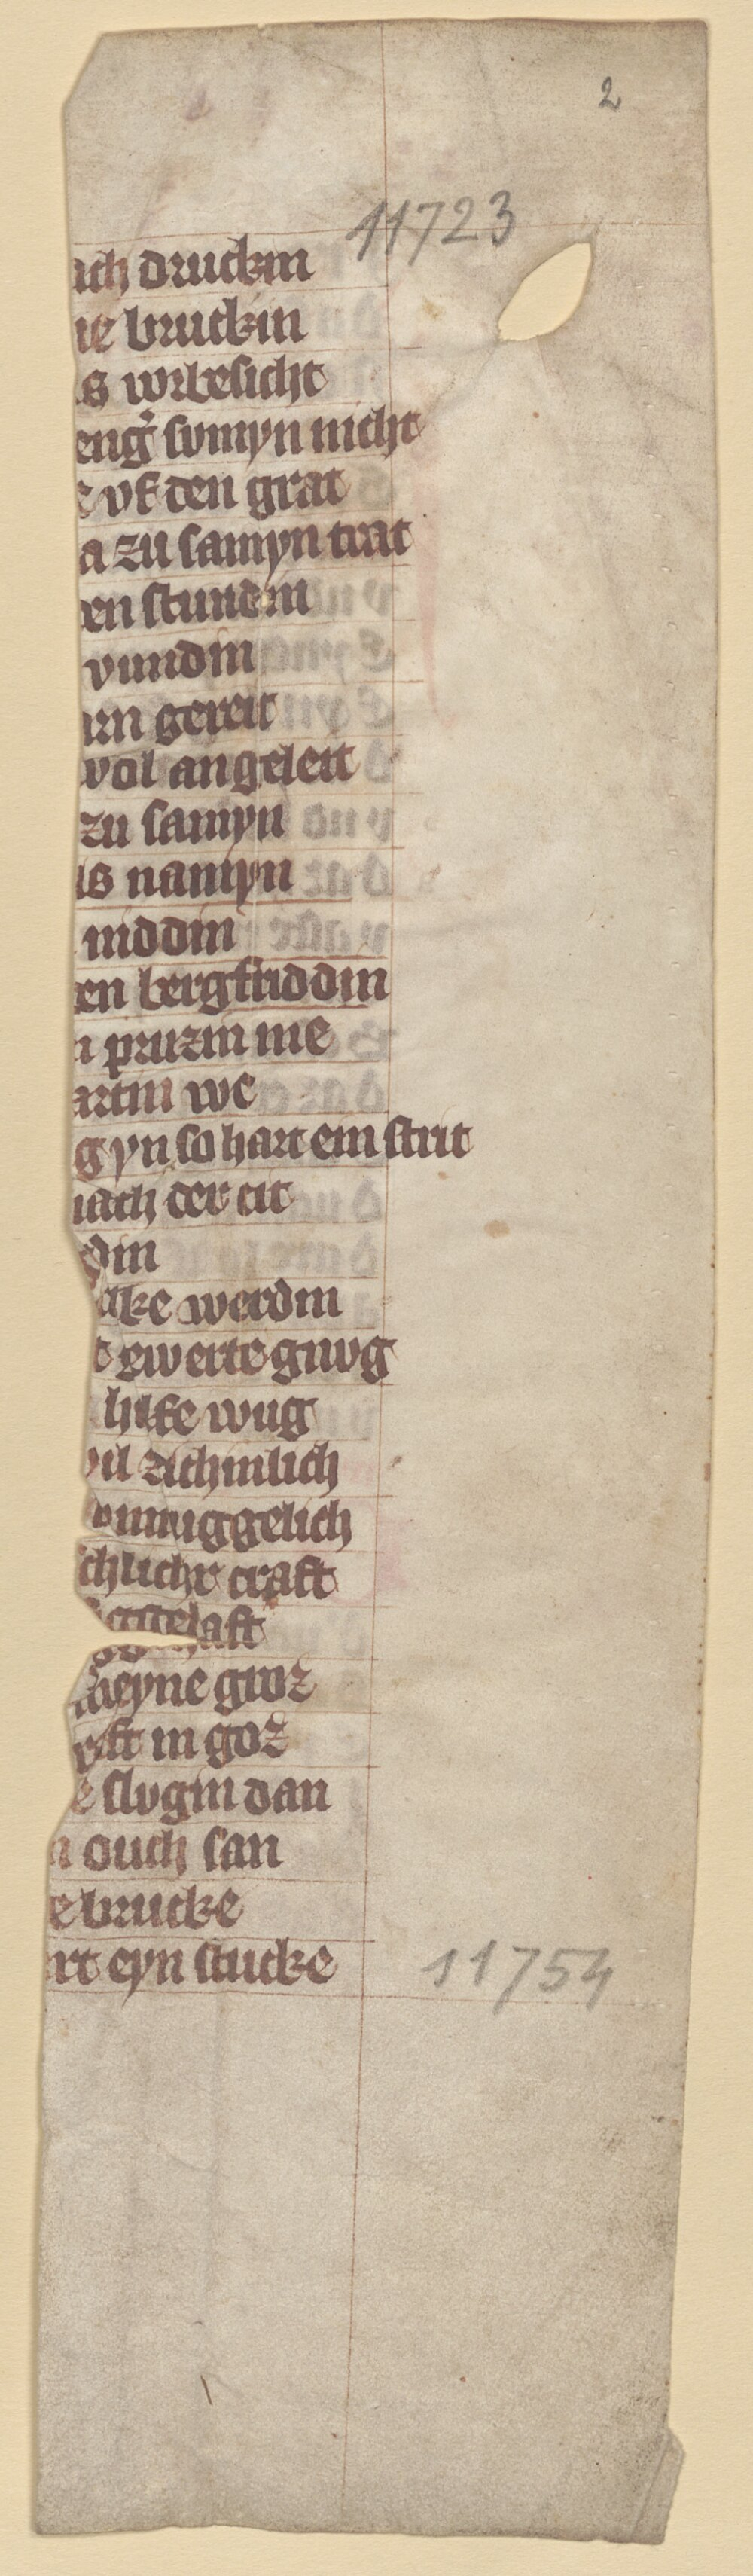 2
11723
ach druckin
ie bruckin
s wrbesicht
eng' svmyn nicht
e vf den grat
a zu samyn trat
en stundin
vundin
arn gereit
wol angeleit
zu samyn
is namyn
niddin
en bergfriddin
n pruzin nie
artin we
g yn so hart ein strit
nach der cit
din
ake werdin
t gwerte gnvg
hilfe wug
vil zichinlich
vnmuggelich
chlichir craft
aft
meyne groz
vft in goz
e slvgin dan
n ouch san
e brucke
rt eyn stucke
11754